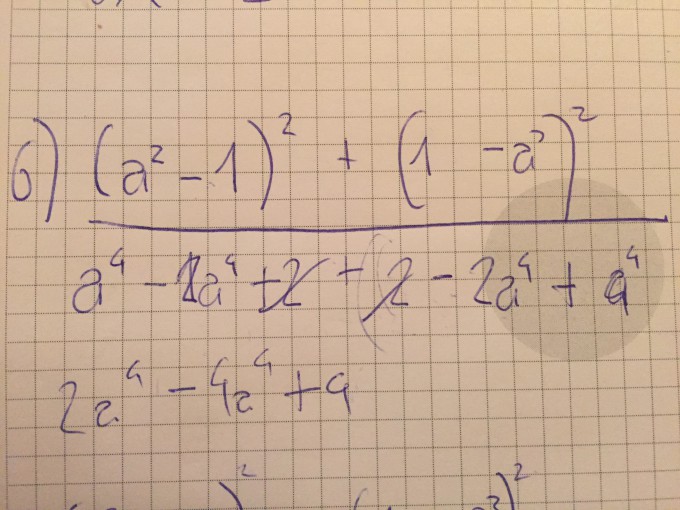 б) (a² - 1)² + (1 - a²)²
a⁴ - 2a⁴ + 2 + 2 - 2a⁴ + a⁴
2a⁴ - 4a⁴ + 4